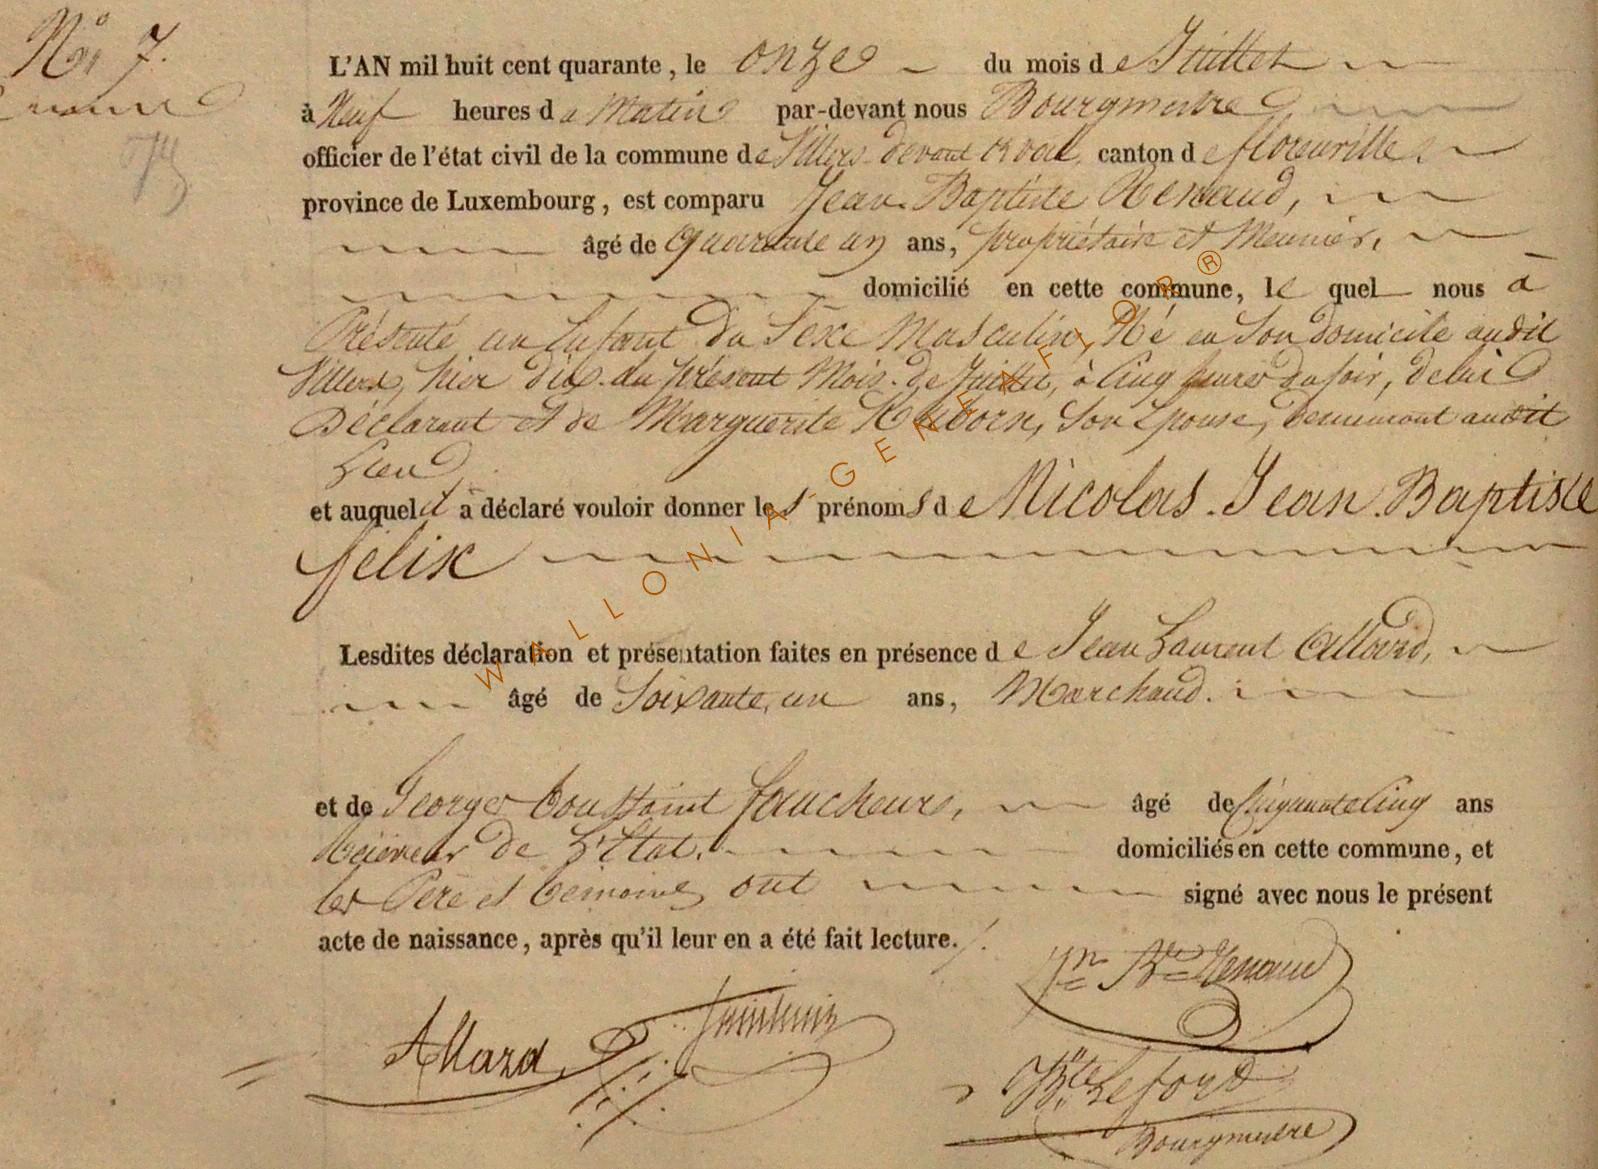 N° 7.
L'AN mil huit cent quarante, le onze du mois de Juillet
à Neuf heures du Matin par-devant nous Bourgmestre
officier de l'état civil de la commune de Villers devant orval, canton de florenville
province de Luxembourg, est comparu Jean Baptiste Renaud,
âgé de Quarante un ans, propriétaire et Meunier,
domicilié en cette commune, lequel nous à
Présenté un Enfant du Sexe Masculin, Né en Son domicile audit
Villers, hier dix du présent Mois de Juillet, à Cinq heures du soir, de lui
Déclarant et de Marguerite Ruborn, Son Epouse, demeurant audit
Lieu
et auquel il à déclaré vouloir donner les prénoms de Nicolas Jean Baptiste
felix
Lesdites déclaration et présentation faites en présence de Jean Laurent Allard,
âgé de Soixante un ans, Marchand.
et de Georges Toussaint Faucheurs, âgé de Cinquante Cinq ans
de L'Etat. domiciliés en cette commune, et
les Père et témoins ont signé avec nous le présent
acte de naissance, après qu'il leur en a été fait lecture.
Jn Bte Renaud
Allard
Bte Lefort
Bourgmestre
WALLONIA-GENEAFLOR®